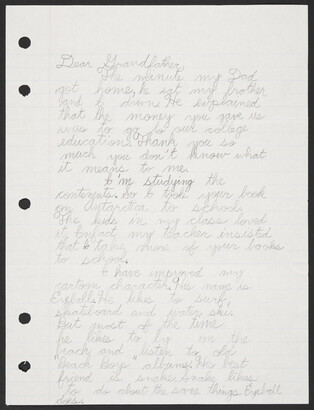 Dear Grandfather,
The minute my Dad
got home, he sat my brother
and I down. He explained
that the money you gave us
was to go to our college
education. Thank you so
much you don't know what
it means to me.
I'm studying the
contents. So I took your book
on Antarctica to school.
The kids in my class loved
it. Infact my teacher insisted
that I take more of your books
to school.
I have improved my
cartoon character. His name is
Eyeball. He likes to surf,
skateboard and water ski.
But most of the time
he likes to lay on the
beach and listen to old
"Beach Boys" albums. His best
friend is snake. Snake likes
to do about the same things Eyeball
does.